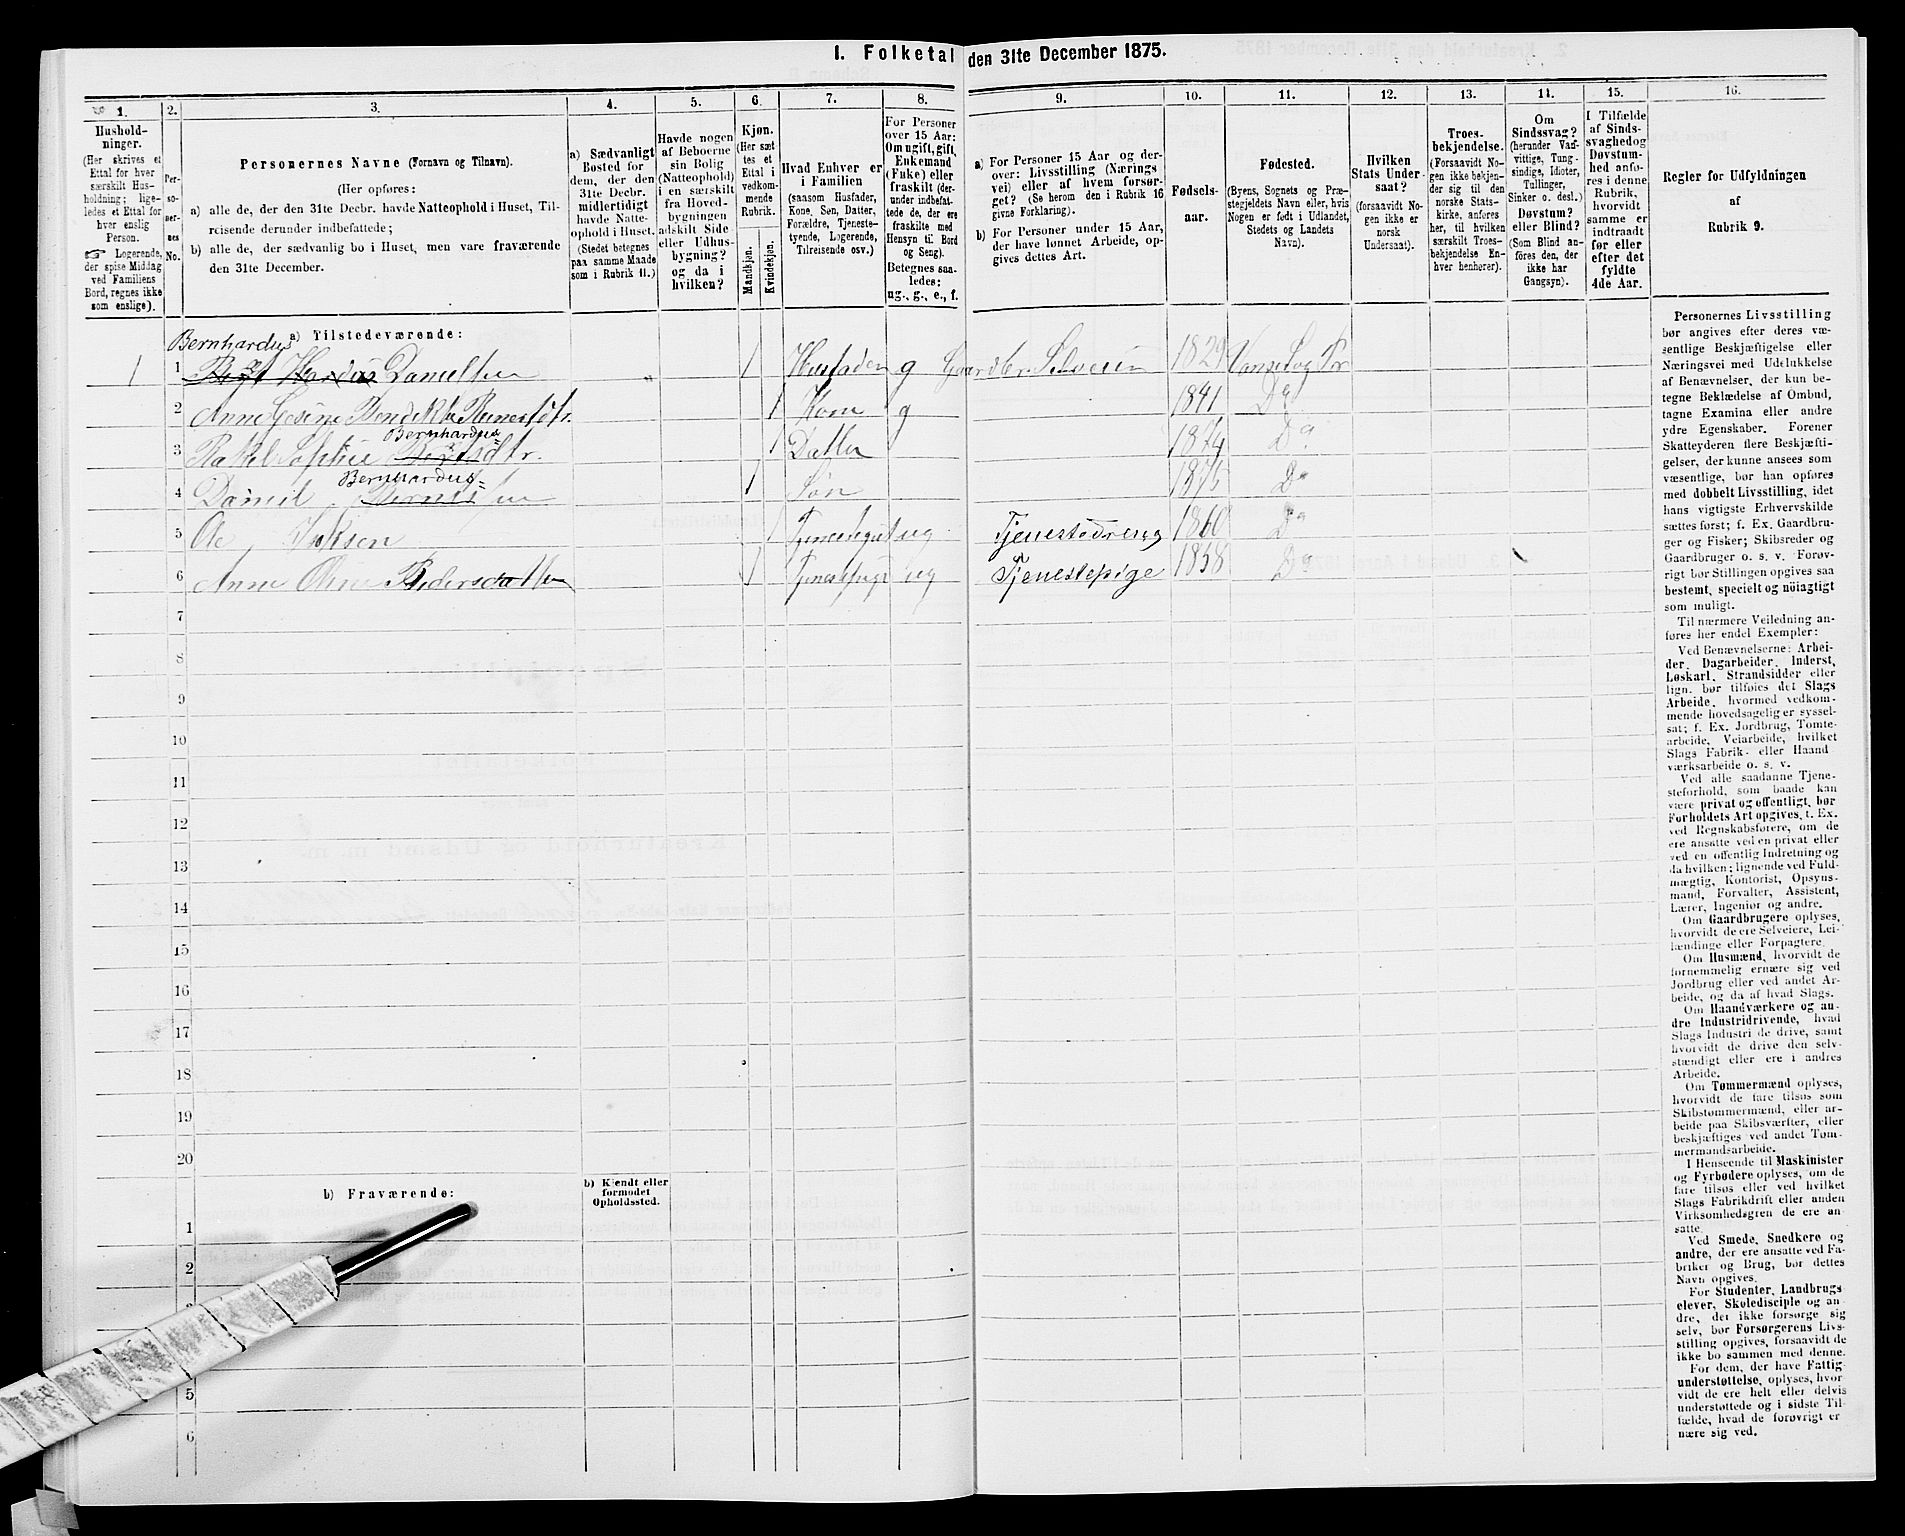 1. Folketal den 31te December 1875.
1.
Hushold-
ninger.
(Her skrives et
Ettal for hver
særskilt Hus-
holdning; lige-
ledes et Ettal for
hver enslig
Person.
☞ Logerende,
der spise Middag
ved Familiens
Bord, regnes ikke
som enslige).
2.
Per-
so-
ner-
nes
No.
3.
Personernes Navne (Fornavn og Tilnavn).
(Her opføres:
a) alle de, der den 31te Decbr. havde Natteophold i Huset, Til-
reisende derunder indbefattede;
b) alle de, der sædvanlig bo i Huset, men vare fraværende
den 31te December.
4.
a) Sædvanligt
Bosted for
dem, der den
31te Decbr.
midlertidigt
havde Natte-
ophold i Huset.
(Stedet betegnes
paa samme Maade
som i Rubrik 11.)
5.
Havde nogen
af Beboerne
sin Bolig
(Natteophold)
i en særskilt
fra Hoved-
bygningen
adskilt Side-
eller Udhus-
bygning?
og da i
hvilken?
6.
Kjøn.
(Her sæt
tes et
Ettal i
vedkom-
mende
Rubrik.
Mandkjøn.
Kvindekjøn.
7.
Hvad Enhver er
i Familien
(saasom Husfader,
Kone, Søn, Datter,
Forældre, Tjeneste-
tyende, Logerende,
Tilreisende osv.)
8.
For Personer
over 15 Aar:
Om ugift, gift,
Enkemand
(Enke) eller
fraskilt (der-
under indbefat-
tede de, der ere
fraskilte med
Hensyn til Bord
og Seng).
Betegnes saa-
ledes:
ug., g., e., f.
9.
a) For Personer 15 Aar og der-
over: Livsstilling (Nærings
vei) eller af hvem forsør-
get? (Se herom den i Rubrik 16
givne Forklaring).
b) For Personer under 15 Aar,
der have lønnet Arbeide, op-
gives dettes Art.
10.
Fødsels-
aar.
11.
Fødested.
(Byens, Sognets og Præ-
stegjeldets Navn eller, hvis
Nogen er født i Udlandet,
Stedets og Landets
Navn).
12.
Hvilken
Stats Under-
saat?
(forsaavidt No-
gen ikke er
norsk
Undersaat).
13.
Troes-
bekjendelse.
(Forsaavidt No-
gen ikke bekjen-
der sig til den
norske Stats-
kirke, anføres
her, til hvilken
særskilt Troes-
bekjendelse En-
hver henhører).
14.
Om
Sindssvag?
(herunder Van-
vittige, Tung-
sindige, Idioter,
Tullinger,
Sinker o. desl.)
Døvstum?
eller Blind?
(Som Blind an-
føres den, der
ikke har
Gangsyn).
15.
I Tilfælde
af Sinds-
svaghed og
Døvstum-
hed anfø-
res i denne
Rubrik,
hvorvidt
samme er
indtraadt
før eller
efter det
fyldte
4de Aar.
16.
Regler for Udfyldningen
af
Rubrik 9.
a) Tilstedeværende:
Bernhardus
1 1 Danielsen 1 Husfader g Gaardbr. Selveier 1829 Vanse S og Pr
2 Anne Gesine Bendikte Reinertsdtr. 1 Kone g 1841 Do
Bernhardus
3 Rakel Sophie dtr. 1 Datter 1874 Do
Bernhardus=
4 Daniel sen 1 Søn 1875 Do
5 Ole 1 ug Tjenestedreng 1860 Do
6 Anne Oline Pedersdatter 1 ug Tjenestepige 1858 Do
7
8
9
10
11
12
13
14
15
16
17
18
19
20
b) Fraværende:
b) Kjendt eller
formodet
Opholdssted.
1
2
3
5
6
Personernes Livsstilling
bør angives efter deres væ-
sentlige Beskjæftigelse eller
Næringsvei med Udelukkelse
af Benævnelser, der kun be-
tegne Beklædelse af Ombud,
tagne Examina eller andre
ydre Egenskaber. Forener
Skatteyderen flere Beskjæfti-
gelser, der kunne ansees som
væsentlige, bør han opføres
med dobbelt Livsstilling, idet
hans vigtigste Erhvervskilde
sættes først; f. Ex. Gaardbru-
ger og Fisker; Skibsreder og
Gaardbruger o. s. v. Forøv-
rigt bør Stillingen opgives saa
bestemt, specielt og nöiagtigt
som muligt.
Til nærmere Veiledning an-
føres her endel Exempler:
Ved Benævnelserne: Arbei-
der, Dagarbeider, Inderst,
Løskarl, Strandsidder eller
lign. bør tilføies det Slags
Arbeide, hvormed vedkom-
mende hovedsagelig er syssel-
sat; f. Ex. Jordbrug, Tomte-
arbeide, Veiarbeide, hvilket
Slags Fabrik- eller Haand-
værksarbeide o. s. v.
Ved alle saadanne Tjene-
steforhold, som baade kan
være privat og offentligt, bør
Forholdets Art opgives, t. Ex.
ved Regnskabsførere, om de
ere ansatte ved en privat eller
ved en offentlig Indretning og
da hvilken; lignende ved Fuld-
mægtig, Kontorist, Opsyns-
mand, Forvalter, Assistent,
Lærer, Ingeniør og andre.
Om Gaardbrugere oplyses,
hvorvidt de ere Selveiere, Lei-
lændinge eller Forpagtere.
Om Husmænd, hvorvidt de
fornemmelig ernære sig ved
Jordbrug eller ved andet Ar-
beide, og da af hvad Slags.
Om Haandværkere og an-
dre Industridrivende, hvad
Slags Industri de drive, samt
hvorvidt de drive den selv-
stændigt eller ere i andres
Arbeide.
Om Tømmermænd oplyses,
hvorvidt de fare tilsøs som
Skibstømmermænd, eller ar-
beide paa Skibsværfter, eller
beskjæftiges ved andet Tøm-
mermandsarbeide.
I Henseende til Maskinister
og Fyrbødere oplyses, om de
fare tilsøs eller ved hvilket
Slags Fabrikdrift eller anden
Virksomhedsgren de ere an-
satte.
Ved Smede, Snedkere og
andre, der ere ansatte ved Fa-
briker og Brug, bør dettes
Navn opgives.
For Studenter, Landbrugs
elever, Skoledisciple og an-
dre, der ikke forsørge sig
selv, bør Forsørgerens Livs-
stilling opgives, forsaavidt de
ikke bo sammen med denne.
For dem, der have Fattig-
understøttelse, oplyses, hvor-
vidt de ere helt eller delvis
understøttede og i sidste Til-
fælde, hvad de forøvrigt er-
nære sig ved.